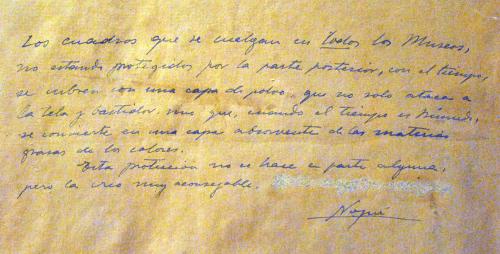 Los cuadros que se cuelgan en Todos los Museos,
no estando protegidos por la parte posterior, con el tiempo,
se cubren con una capa de polvo, que no solo ataca a
la tela y bastidor, sino que, cuando el tiempo es húmedo,
se convierte en una capa absorvente de las materias
grasas de los colores.
Esta protección no se hace en parte alguna,
pero la creo muy aconsejable.